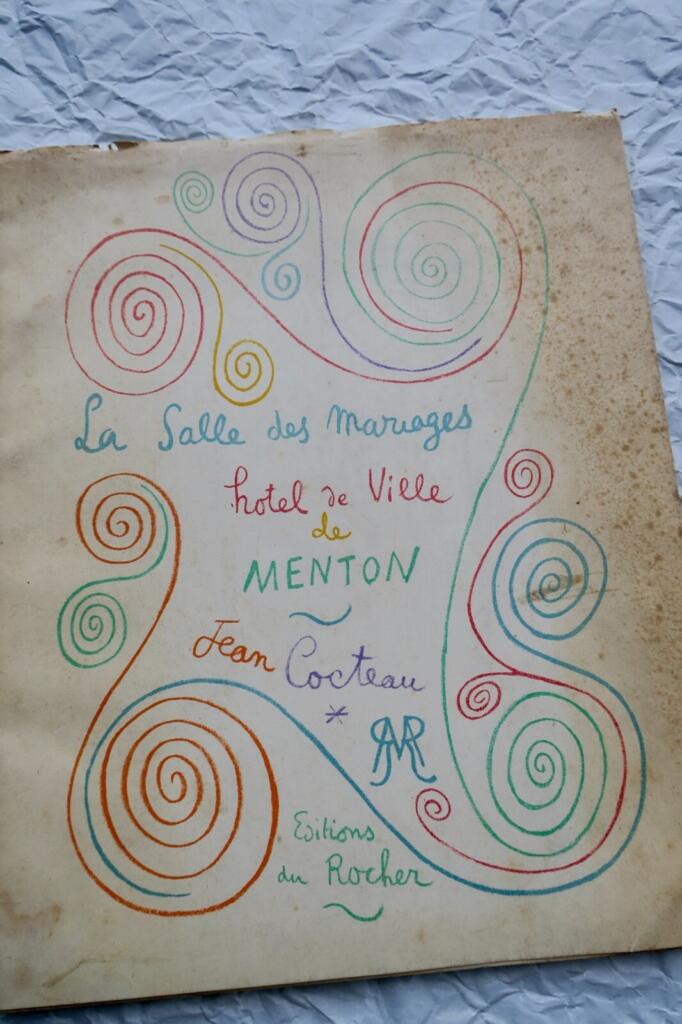 La Salle des mariages
hotel de Ville
de
MENTON
Jean Cocteau
*
Editions
du Rocher